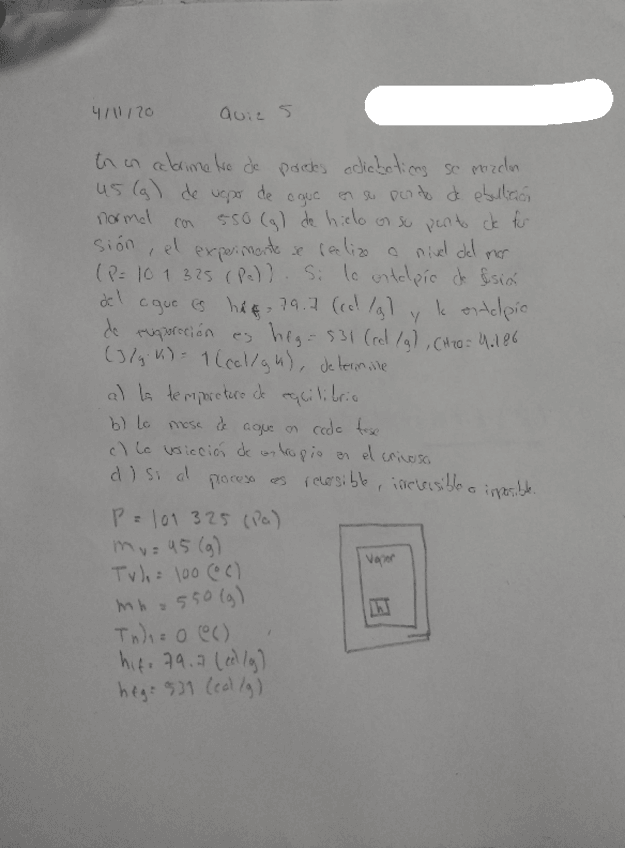 4/11/20 Quiz 5
En un calorimetro de paredes adiabaticas se mezclan
45 (g) de vapor de agua en su punto de ebullición
normal con 550 (g) de hielo en su punto de fu
sión, el experimento se realizo a nivel del mar
(P= 101 325 (Pa)). Si la entalpía de fusión
del agua es hif= 79.7 (cal/g) y la entalpia
de evaporación es hfg = 531 (cal/g), CH2O= 4.186
(J/g·K) = 1 (cal/g K), determine
a) la temperatura de equilibrio
b) La masa de agua en cada fase
c) La variación de entropia en el universo
d) Si el proceso es reversible, irreversible o imposible.
P = 101 325 (Pa)
mv = 45 (g)
Tv)1 = 100 (°C)
mh = 550 (g)
Th)1 = 0 (°C)
hif= 79.7 (cal/g)
hfg= 531 (cal/g)
Vapor
h